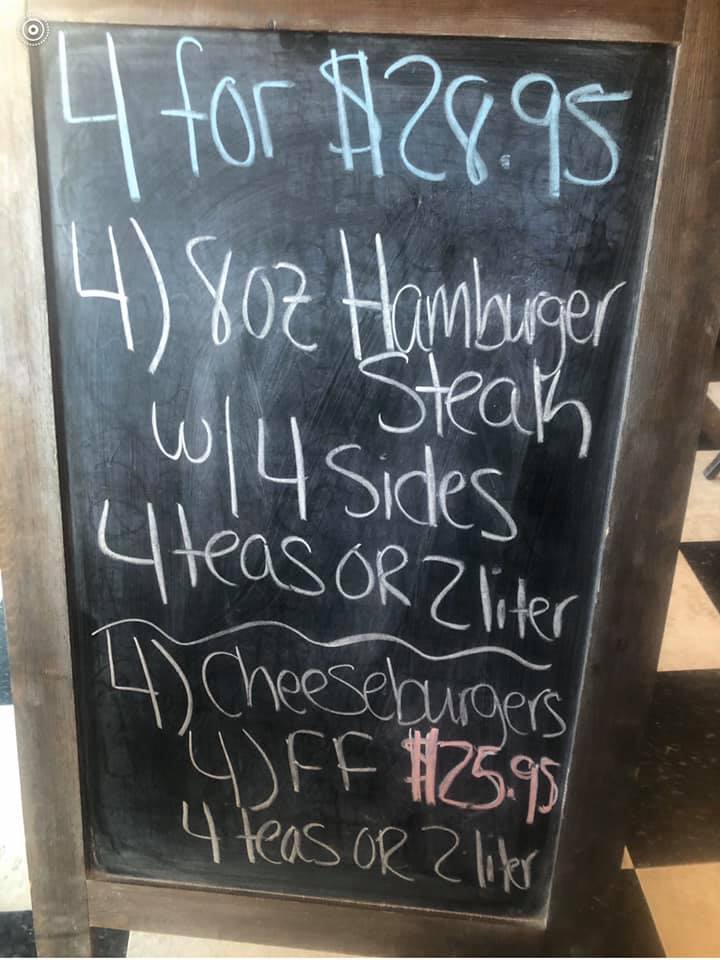 4 for $28.95
4) 8oz Hamburger
Steak
w/ 4 Sides
4 teas OR 2 liter
4) Cheeseburgers
4) FF $25.95
4 teas OR 2 liter